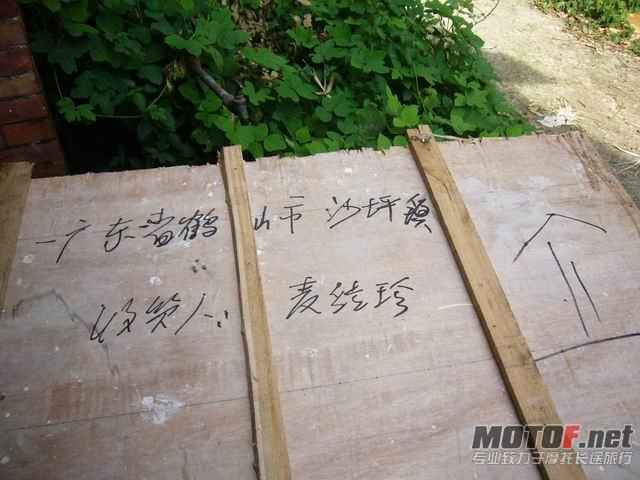 广东省鹤山市沙坪镇
收货人: 麦结珍
MOTOF.net
专业致力于摩托长途旅行